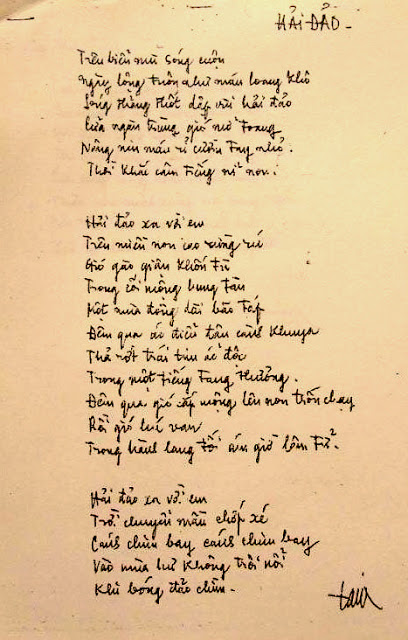 HẢI ĐẢO -
Trên biển mù sóng cuộn
ngày lông như máu loang khô
Sóng dập vùi hải đảo
Lửa ngàn trùng gió mở toang
Nâng niu máu rỉ cườm tay nhỏ.
Thời khắc câm tiếng nỉ non.
Hải đảo xa vời em
Trên miền non cao rừng rú
Gió gào giận khốn từ
Trong cõi mộng bung tàn
Một mùa đông dài bão táp
Đêm qua ác điểu tàn canh khuya
Thả rớt trái tim ác độc
Trong một tiếng tang thương.
Đêm qua gió cắp mộng lên non trốn chạy
Rồi gió hú van
Trong hành lang tối án giờ lâm tử.
Hải đảo xa vời em
Trời chuyển mầu chớp xé
Cánh chim bay cánh chim bay
Vào mùa hư không trôi nổi
Khi bóng đảo chìm -